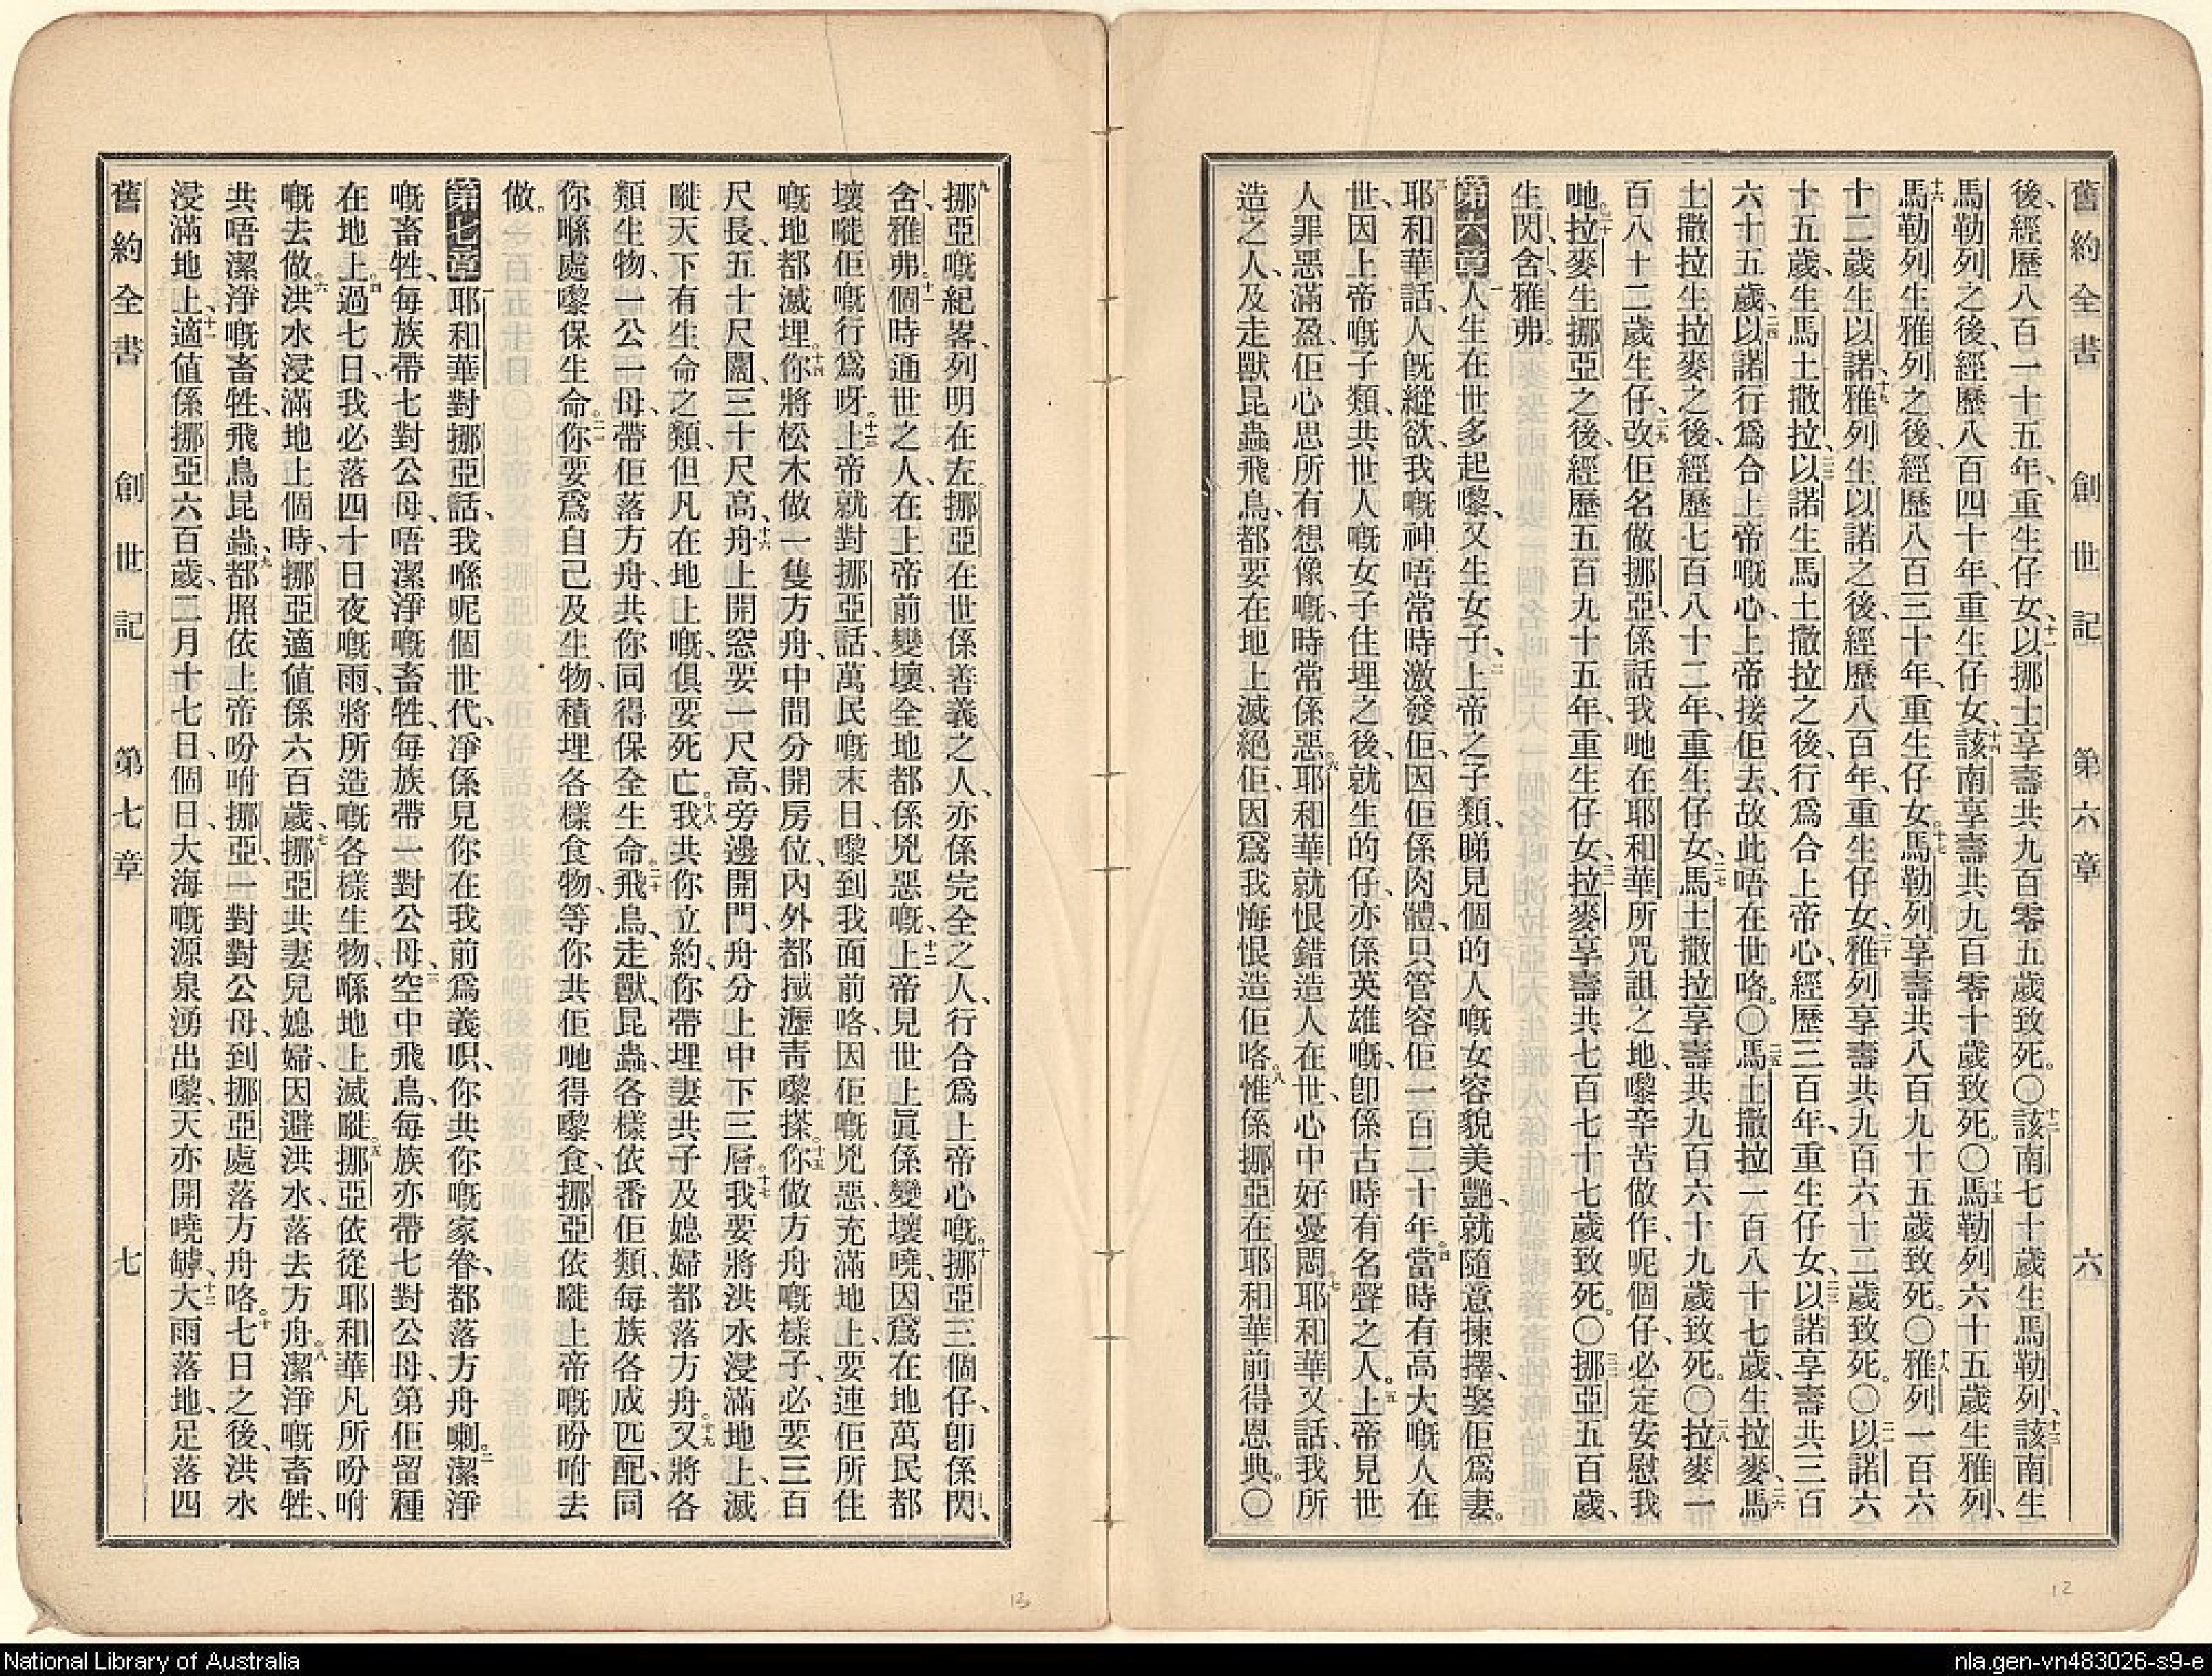 舊約全書 創世記 第六章 六
後、經歷八百一十五年、重生仔女、十一以挪士享壽共九百零五歲致死。〇十二該南七十歲生馬勒列、十三該南生
馬勒列之後、經歷八百四十年、重生仔女、十四該南享壽共九百零十歲致死。〇十五馬勒列六十五歲生雅列、
十六馬勒列生雅列之後、經歷八百三十年、重生仔女。十七馬勒列享壽共八百九十五歲致死。〇十八雅列一百六
十二歲生以諾、十九雅列生以諾之後、經歷八百年、重生仔女、二十雅列享壽共九百六十二歲致死。〇二一以諾六
十五歲、生馬土撒拉、二二以諾生馬土撒拉之後、行爲合上帝心、經歷三百年、重生仔女、二三以諾享壽共三百
六十五歲、二四以諾行爲合上帝嘅心、上帝接佢去、故此唔在世咯。〇二五馬土撒拉一百八十七歲、生拉麥、二六馬
土撒拉生拉麥之後、經歷七百八十二年、重生仔女、二七馬土撒拉享壽共九百六十九歲致死。〇二八拉麥一
百八十二歲生仔、二九改佢名做挪亞、係話我哋在耶和華所咒詛之地、嚟辛苦做作、呢個仔、必定安慰我
哋。三十拉麥生挪亞之後、經歷五百九十五年、重生仔女、三一拉麥享壽共七百七十七歲致死。〇三二挪亞五百歲、
生閃、含、雅弗。
第六章 一人生在世多起嚟、又生女子、二上帝之子類、睇見個的人嘅女容貌美艷、就隨意揀擇、娶佢爲妻。
三耶和華話、人旣縱欲、我嘅神唔常時激發佢、因佢係肉體、只管容佢一百二十年。四當時有高大嘅人在
世、因上帝嘅子類、共世人嘅女子住埋之後、就生的仔、亦係英雄嘅、卽係古時有名聲之人。五上帝見世
人罪惡滿盈、佢心思所有想像嘅、時常係惡。六耶和華就恨錯造人在世、心中好憂悶。七耶和華又話、我所
造之人、及走獸昆蟲飛鳥、都要在地上滅絕佢、因爲我悔恨造佢咯。八惟係挪亞在耶和華前得恩典。〇
九挪亞嘅紀畧、列明在左。挪亞在世係善義之人、亦係完全之人、行合爲上帝心嘅。十挪亞三個仔、卽係閃、
含、雅弗。十一個時通世之人、在上帝前變壞、全地都係兇惡嘅、十二上帝見世上眞係變壞嘵、因爲在地萬民都
壞嘥佢嘅行爲呀。十三上帝就對挪亞話、萬民嘅末日、嚟到我面前咯、因佢嘅兇惡、充滿地上、要連佢所住
嘅地都滅埋。十四你將松木做一隻方舟、中間分開房位、內外都搣瀝靑嚟搽。十五你做方舟嘅樣子、必要三百
尺長、五十尺闊、三十尺高、十六舟上開窓要一尺高、旁邊開門、舟分上中下三層。十七我要將洪水浸滿地上、滅
嘥天下有生命之類、但凡在地上嘅、俱要死亡。十八我共你立約、你帶埋妻共子及媳婦都落方舟。十九又將各
類生物、一公一母、帶佢落方舟、共你同得保全生命。二十飛鳥、走獸、昆蟲、各樣依番佢類、每族各成匹配、同
你喺處嚟保生命。二一你要爲自己及生物、積埋各樣食物、等你共佢哋得嚟食、挪亞依嘥上帝嘅吩咐去
做。
第七章 一耶和華對挪亞話、我喺呢個世代、淨係見你在我前爲義唄、你共你嘅家眷、都落方舟喇。二潔淨
嘅畜牲、每族帶七對公母、唔潔淨嘅畜牲、每族帶一對公母、三空中飛鳥、每族亦帶七對公母、第佢留種
在地上。四過七日、我必落四十日夜嘅雨、將所造嘅各樣生物、喺地上滅嘥。五挪亞依從耶和華凡所吩咐
嘅去做。六洪水浸滿地上個時、挪亞適值係六百歲、七挪亞共妻兒媳婦、因避洪水、落去方舟。八潔淨嘅畜牲、
共唔潔淨嘅畜牲、飛鳥昆蟲、九都照依上帝吩咐挪亞、一對對公母、到挪亞處落方舟咯。十七日之後、洪水
浸滿地上、十一適值係挪亞六百歲、二月十七日、個日、大海嘅源泉湧出嚟、天亦開嘵罅、十二大雨落地、足落四
舊約全書 創世記 第七章 七
12
13
National Library of Australia
nla.gen-vn483026-s9-e